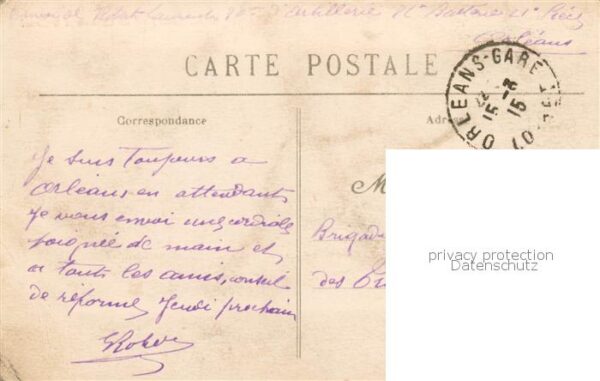 d'Artillerie
Orléans
CARTE POSTALE
ORLEANS-GARE
15
15
Correspondance
Adre
Je suis toujours a
Orléans en attendant
Je vous envoi une cordiale
poignée de main et
a tous les amis, conseil
de réforme Jeudi prochain
M
Brigadi
des
privacy protection
Datenschutz